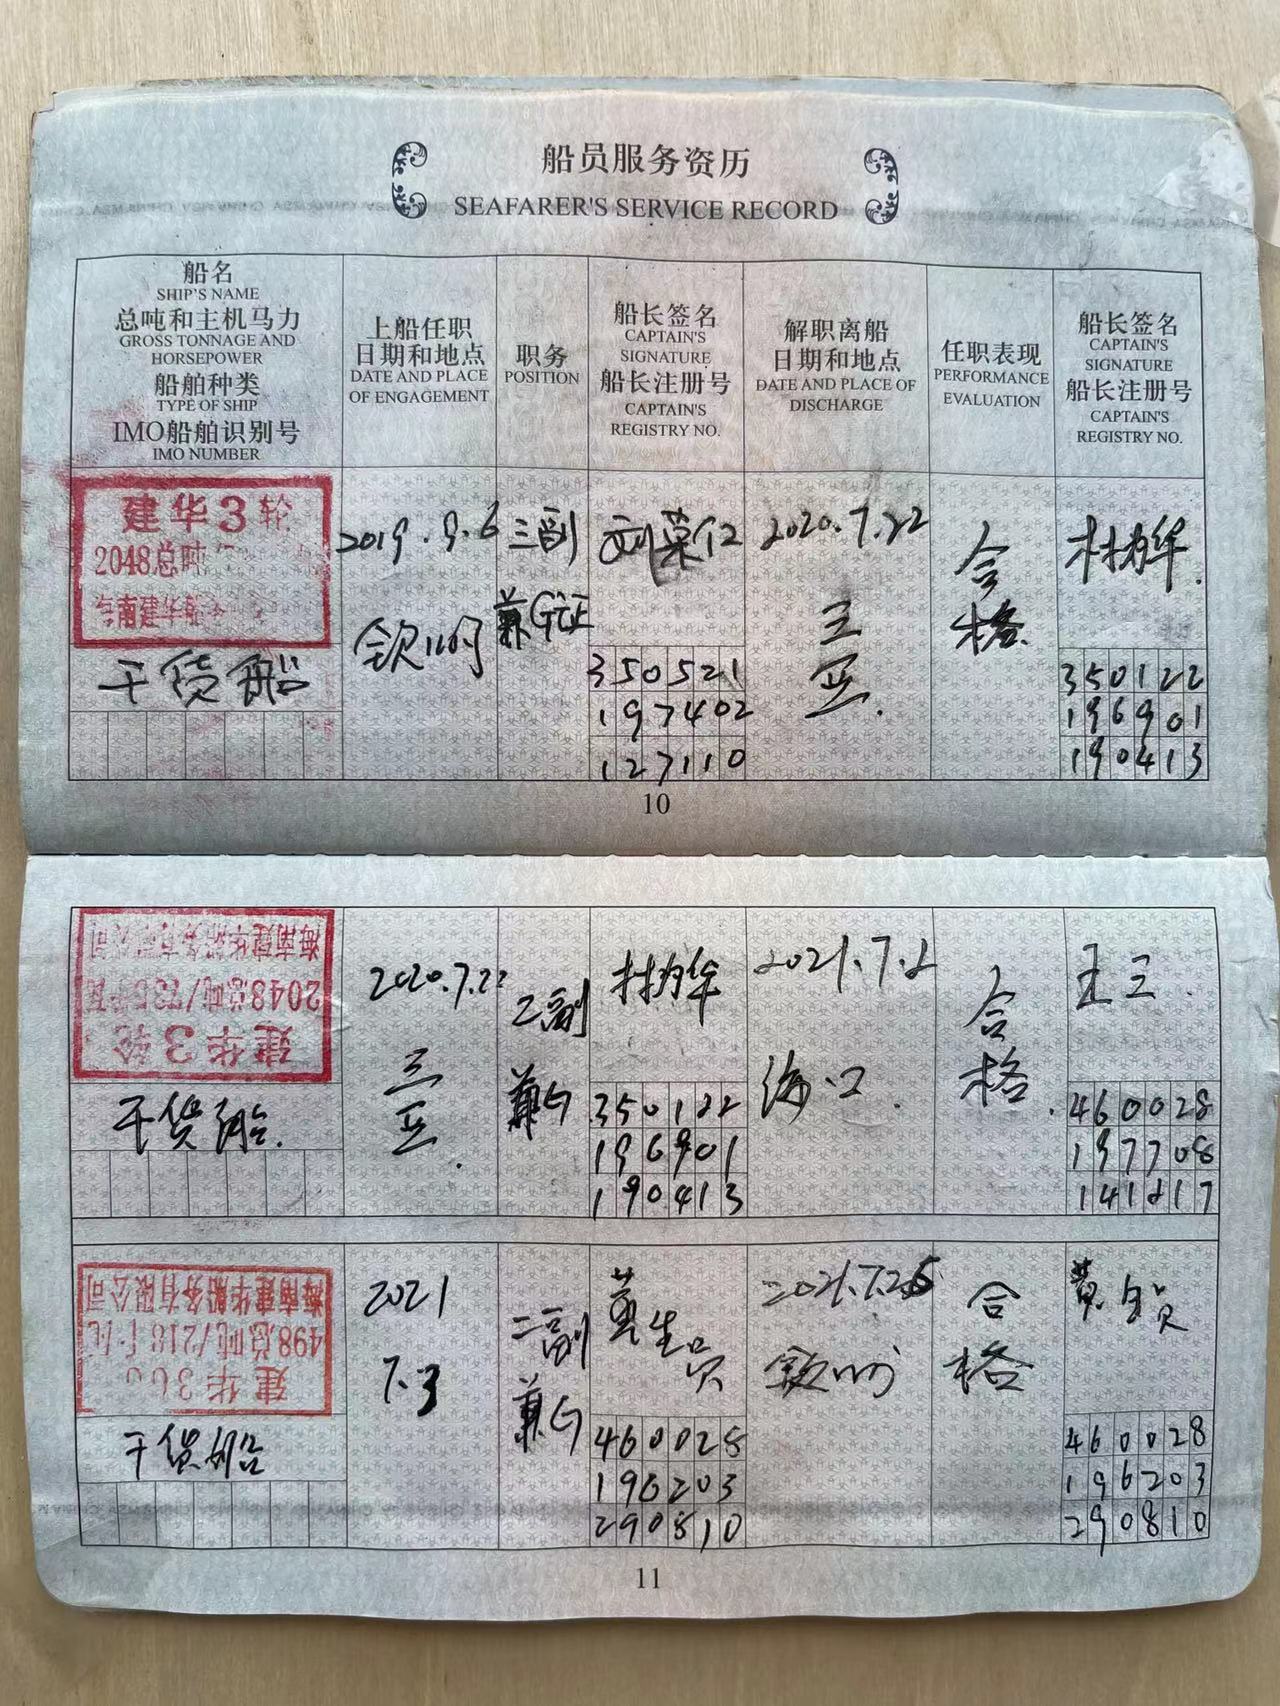 船员服务资历
SEAFARER'S SERVICE RECORD
船名
SHIP'S NAME
总吨和主机马力
GROSS TONNAGE AND
HORSEPOWER
船舶种类
TYPE OF SHIP
IMO船舶识别号
IMO NUMBER
上船任职
日期和地点
DATE AND PLACE
OF ENGAGEMENT
职务
POSITION
船长签名
CAPTAIN'S
SIGNATURE
船长注册号
CAPTAIN'S
REGISTRY NO.
解职离船
日期和地点
DATE AND PLACE OF
DISCHARGE
任职表现
PERFORMANCE
EVALUATION
船长签名
CAPTAIN'S
SIGNATURE
船长注册号
CAPTAIN'S
REGISTRY NO.
建华3轮
2048总吨
南建华船
干货船
2019.9.6
三副
兼G证
350521
197402
127110
2020.7.22
三
亚.
合
格
350122
196901
190413
10
海南建华船务有限公司
2048总吨/735千瓦
建华3轮
干货船.
2020.7.22
三
亚.
二副
兼G
350122
196901
190413
2021.7.2
海口.
合
格.
王三.
460028
197708
141217
海南建华船务有限公司
498总吨/218千瓦
建华
干货船
2021
7.3
二副
兼G
460028
196203
290810
合
格
460028
196203
290810
11